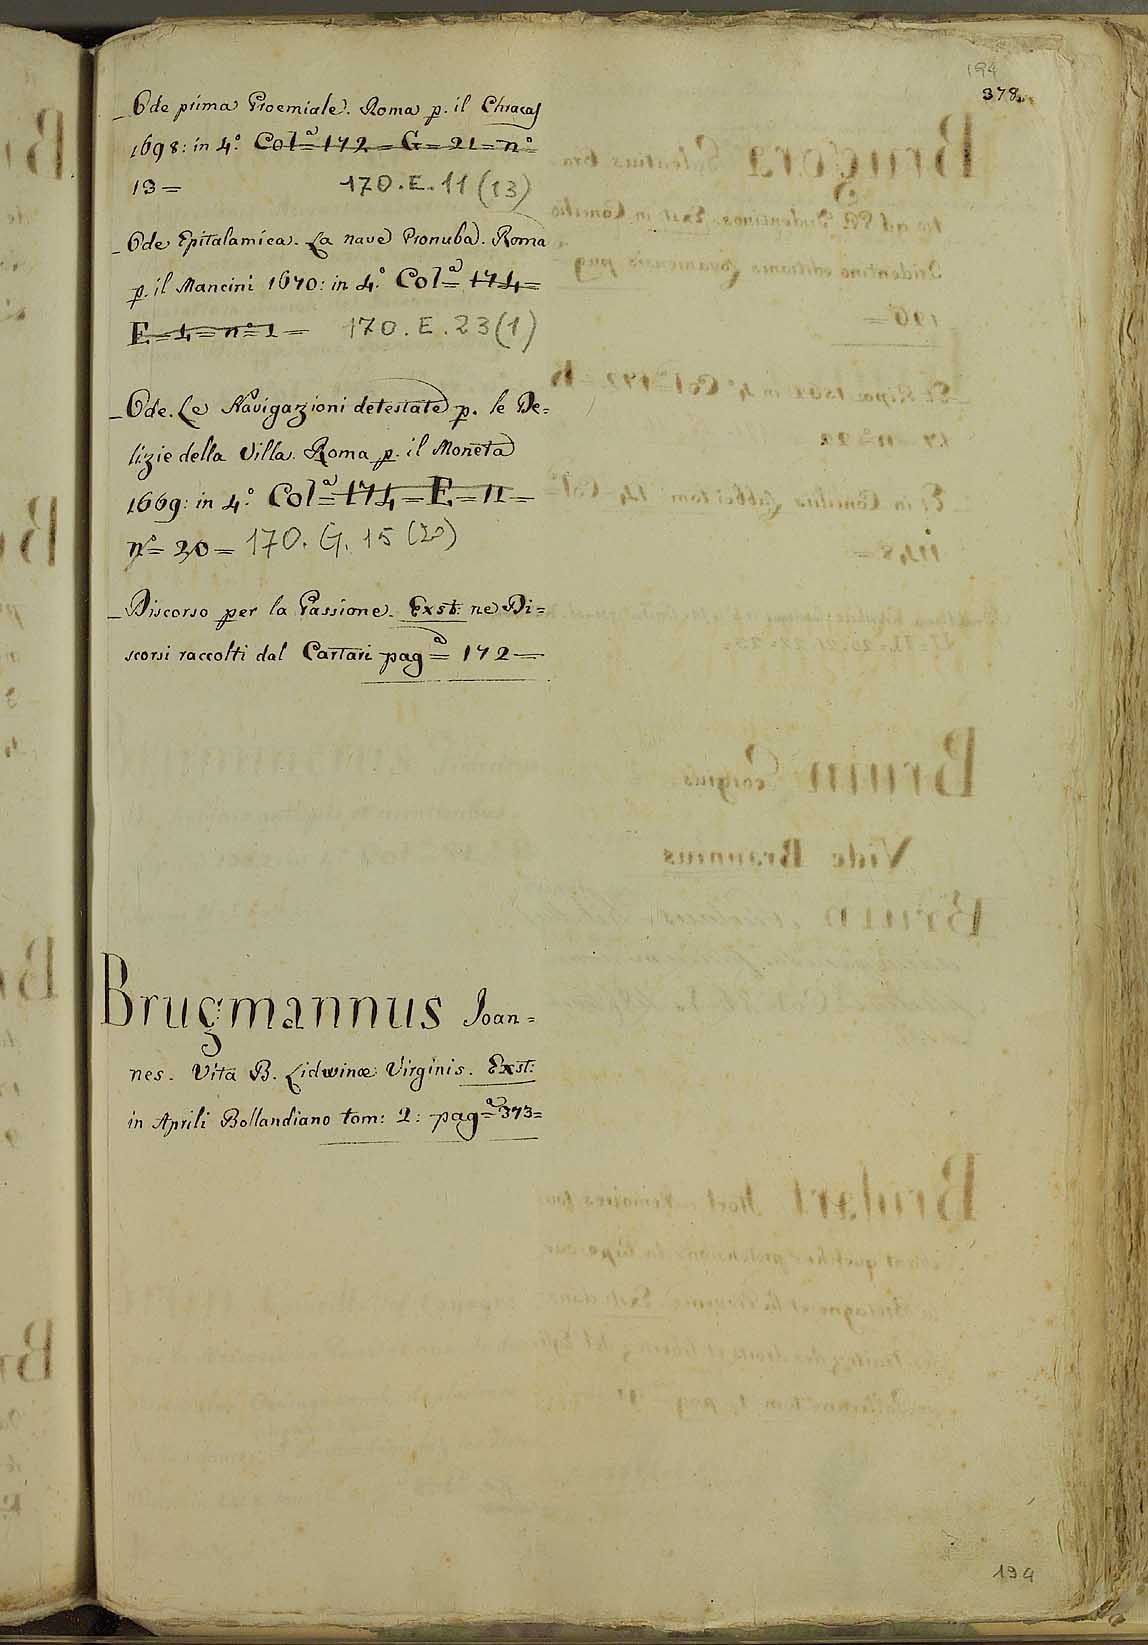 194
378.
_Ode prima Proemiale. Roma p. il Chracas
1698: in 4.° Col.ª 172 = G = 21 = n.°
13 = 170. E. 11 (13)
_Ode Epitalamica. La nave Pronuba. Roma
p. il Mancini 1670: in 4.° Col.ª 174 =
E = 4 = n.° 1 = 170. E. 23 (1)
_Ode. Le Navigazioni detestate p. le De=
lizie della Villa. Roma p. il Moneta
1669: in 4.° Col.ª 174 = E = 11 =
n.° = 20 = 170. G. 15 (20)
_Discorso per la Passione. Exst: ne Di=
scorsi raccolti dal Cartari pag.ª = 172 =
Brugmannus Joan=
nes. Vita B. Lidwinæ Virginis. Exst:
in Aprili Bollandiano tom: 2: pag.ª = 373 =
194